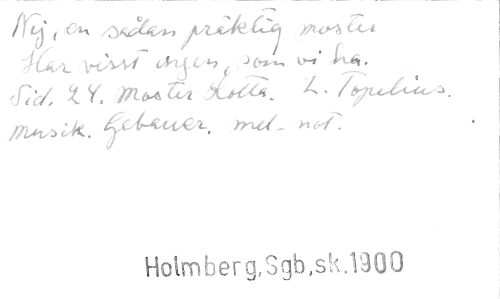 Nej, en sådan präktig moster
Har visst ingen, som vi ha.
Sid. 24. Moster Lotta. L. Topelius.
musik. Gebauer. mel-not.
Holmberg,Sgb,sk.1900